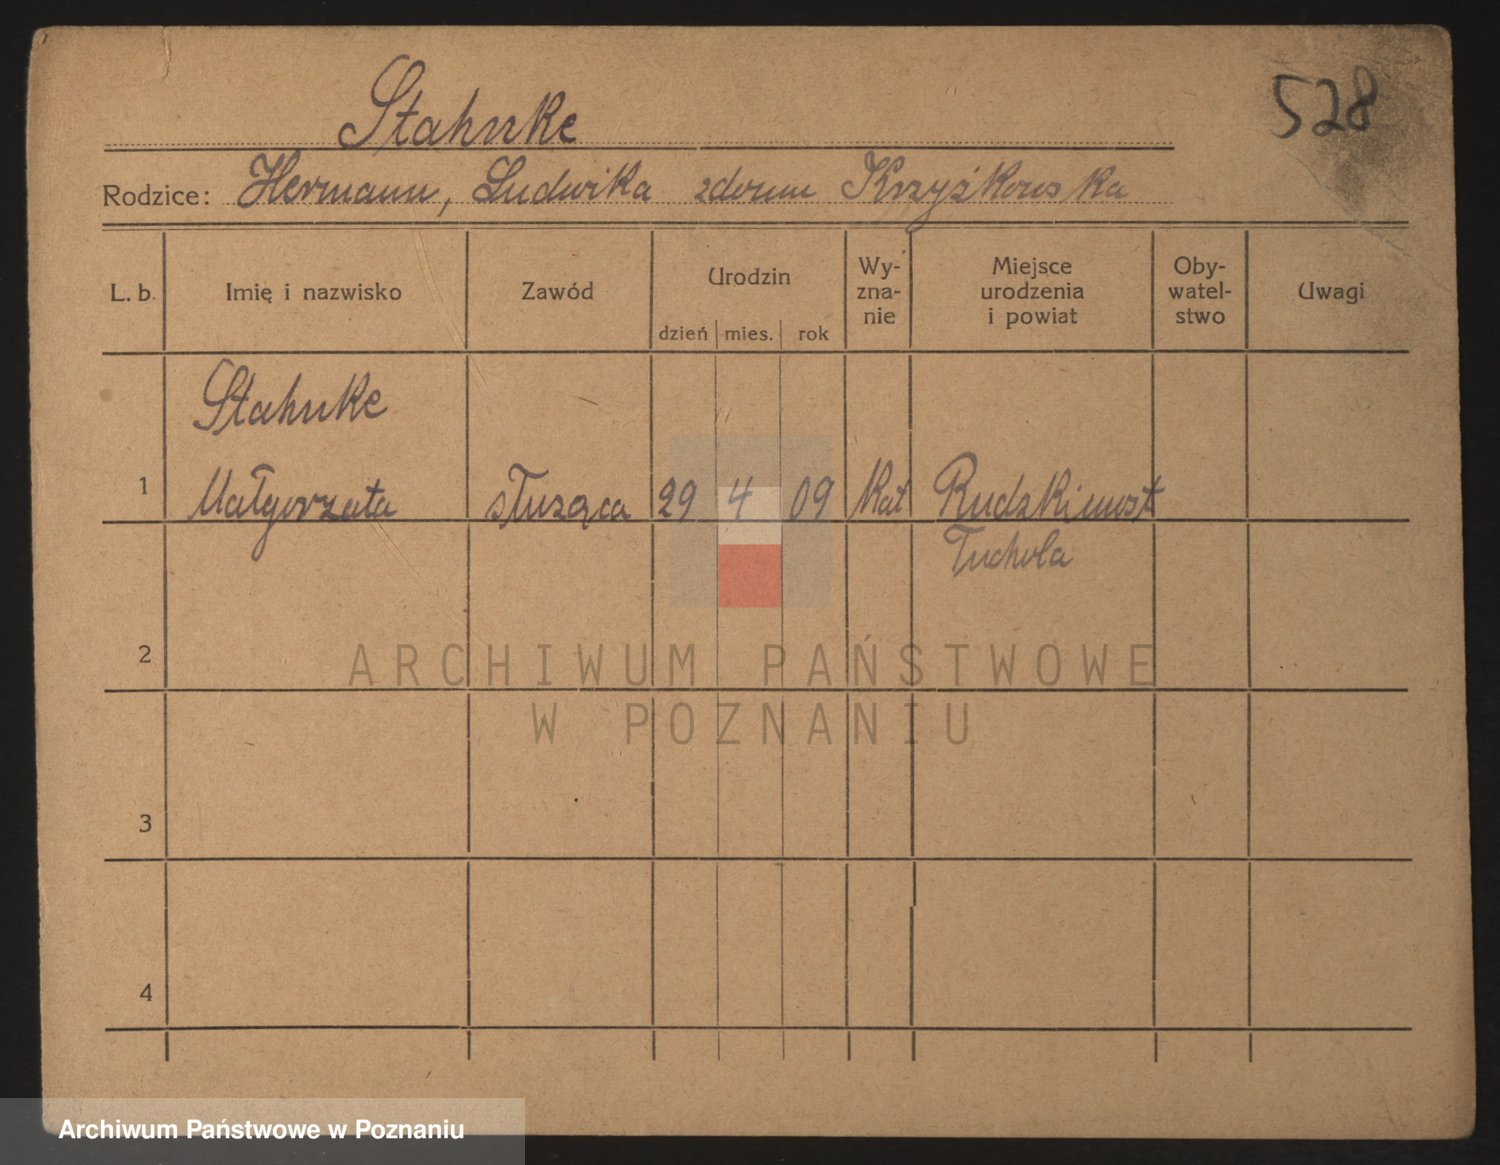 528
Stahnke
Rodzice: Hermann, Ludwika zdomu Krzyżkowska
L. b. Imię i nazwisko Zawód Urodzin dzień mies. rok Wy-zna-nie Miejsce urodzenia i powiat Oby-watel-stwo Uwagi
Stahnke
1 Małgorzata służąca 29 4 09 Kat Rudzkimost
Tuchola
2
ARCHIWUM PAŃSTWOWE
W POZNANIU
3
4
Archiwum Państwowe w Poznaniu